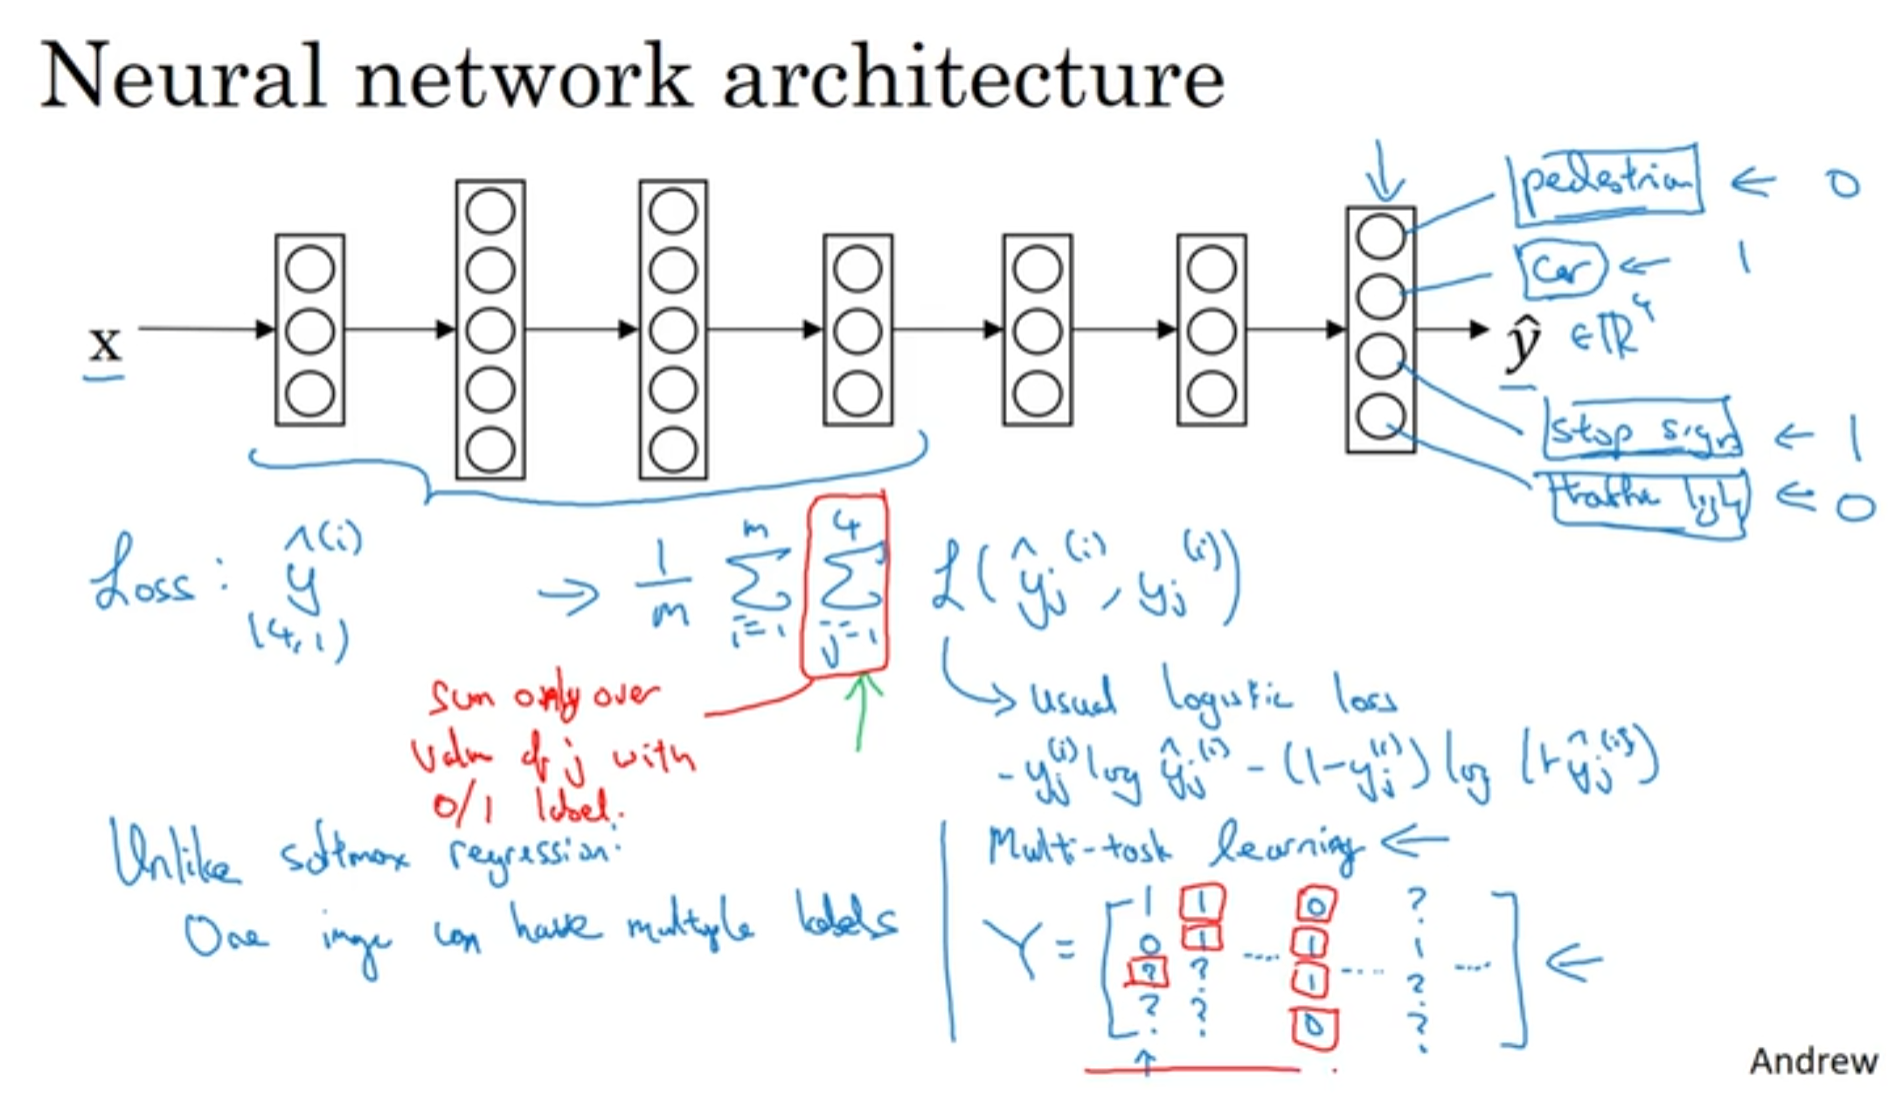 Neural network architecture
pedestrian ← 0
car ← 1
x
ŷ ∈ ℝ⁴
stop sign ← 1
traffic light ← 0
Loss: ŷ^(i) → 1/m Σ_{i=1}^{m} Σ_{j=1}^{4} ℒ(ŷ_j^(i), y_j^(i))
(4,1)
Sum only over
value of j with
0/1 label.
usual logistic loss
- y_j^(i) log ŷ_j^(i) - (1-y_j^(i)) log (1-ŷ_j^(i))
Unlike softmax regression:
One image can have multiple labels
Multi-task learning ←
Y = [
1 1 0 ?
0 1 .... 1 .... 1 ....
? ? 1 ?
? ? 0 ?
] ←
Andrew